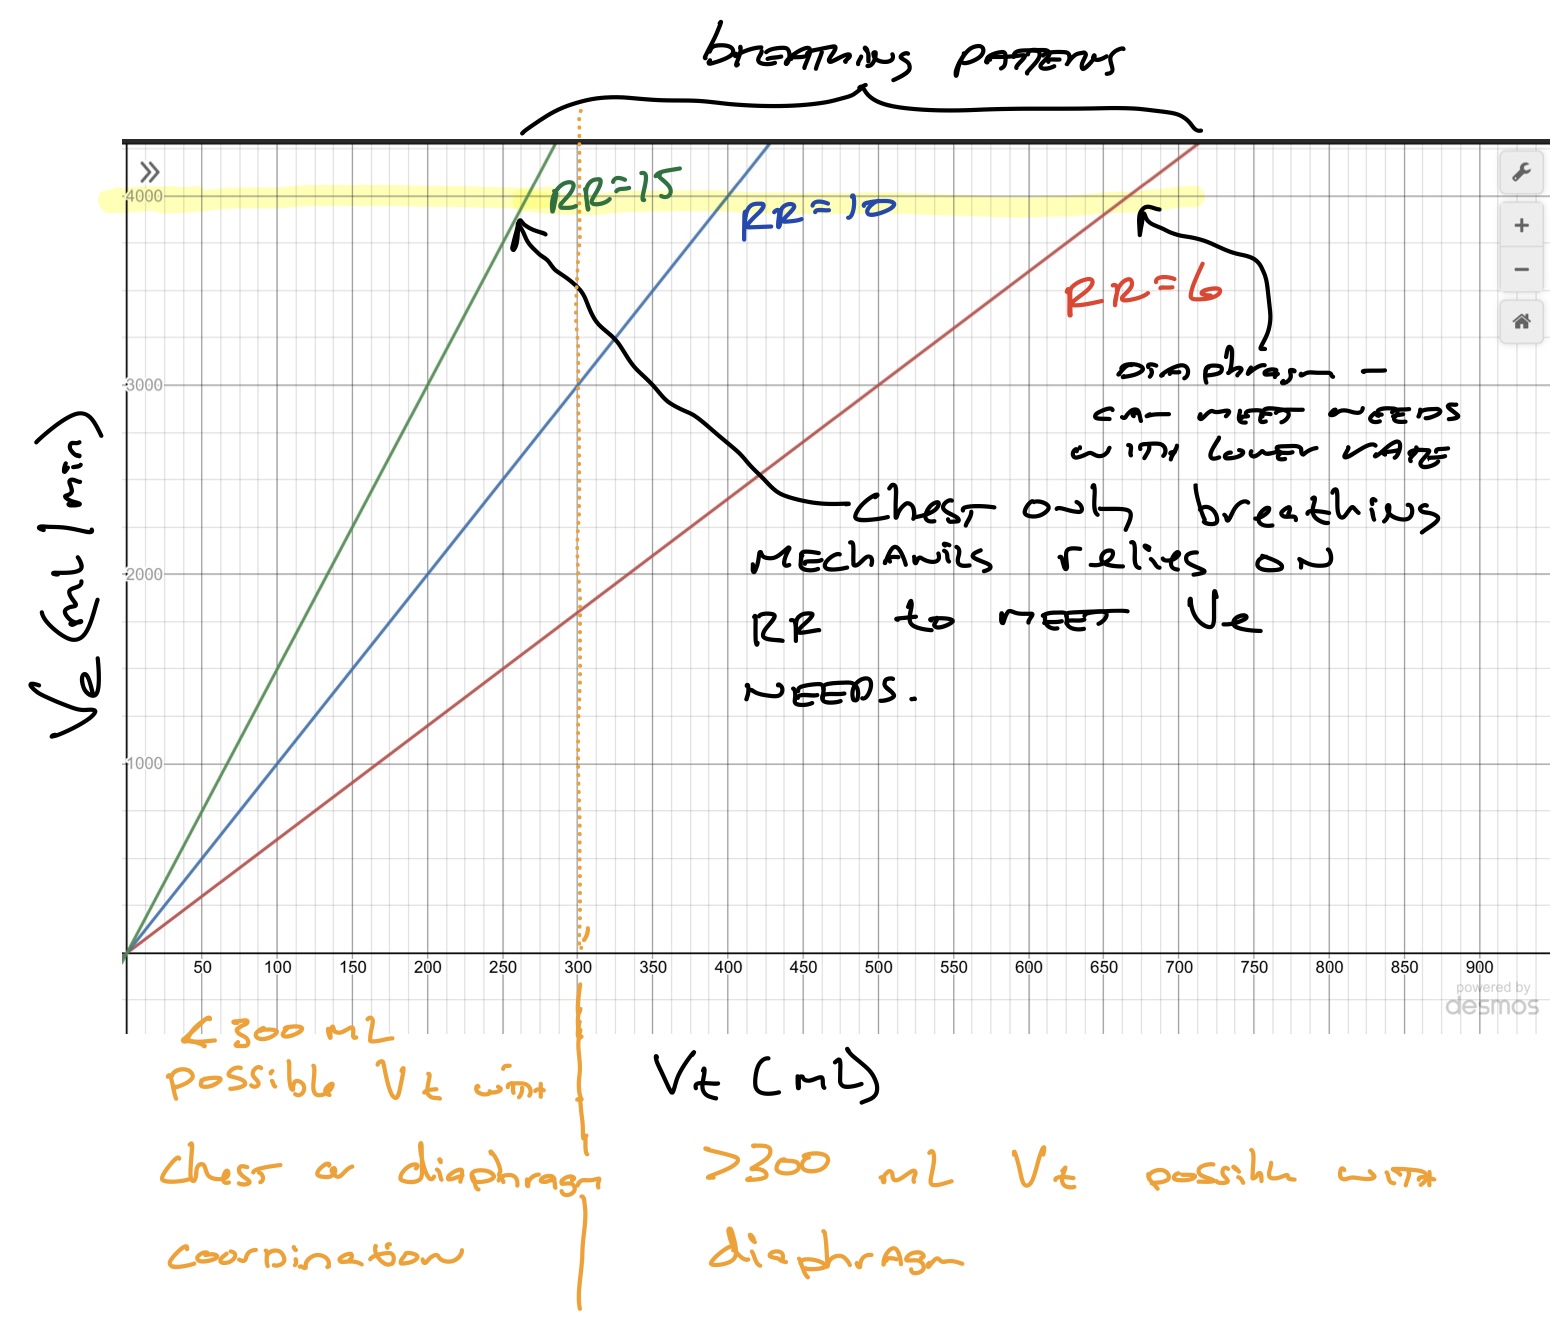 breathing patterns
4000
RR=15
RR=10
RR=6
Diaphragm -
can meet needs
with lower rate
3000
Chest only breathing
mechanics relies on
RR to meet Ve
needs.
2000
1000
Ve (mL/min)
50 100 150 200 250 300 350 400 450 500 550 600 650 700 750 800 850 900
powered by
desmos
Vt (mL)
<300 mL
possible Vt with
chest or diaphragm
coordination
>300 mL Vt possible with
diaphragm